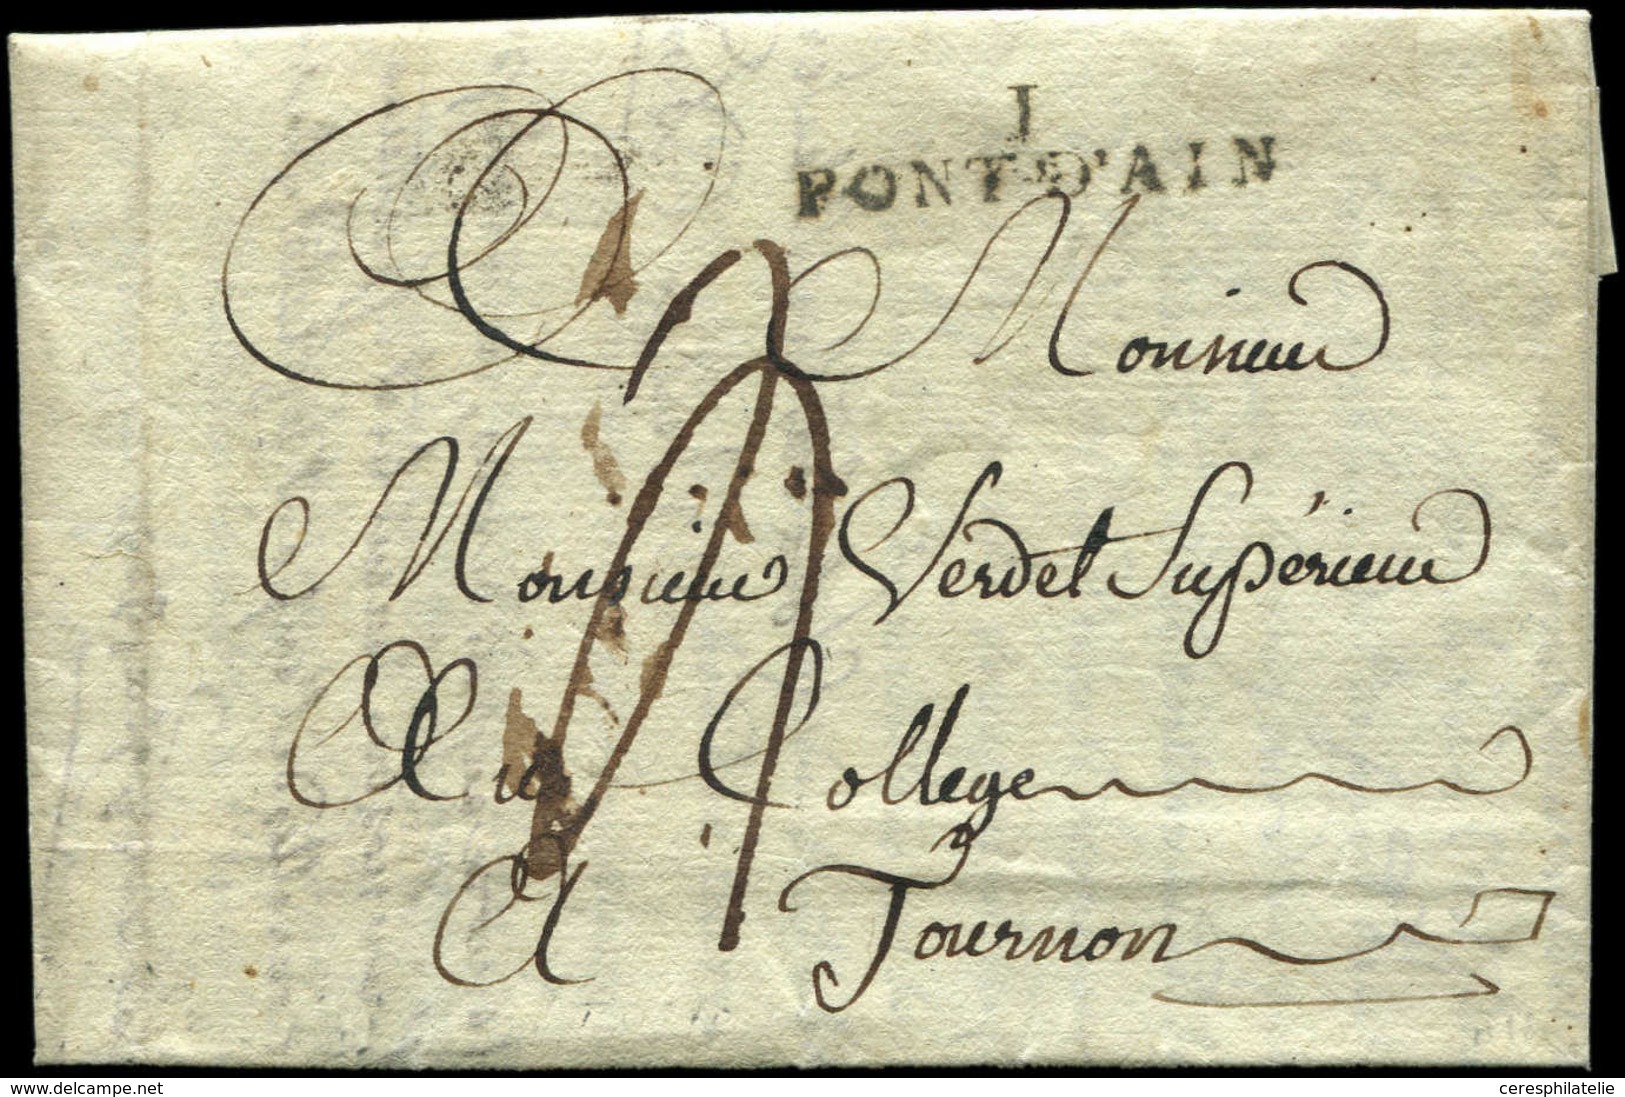 1
PONT-D'AIN
Monsieur
Monsieur Verdet Supérieur
Au College
A Tournon
www.delcampe.net
ceresphilatelie